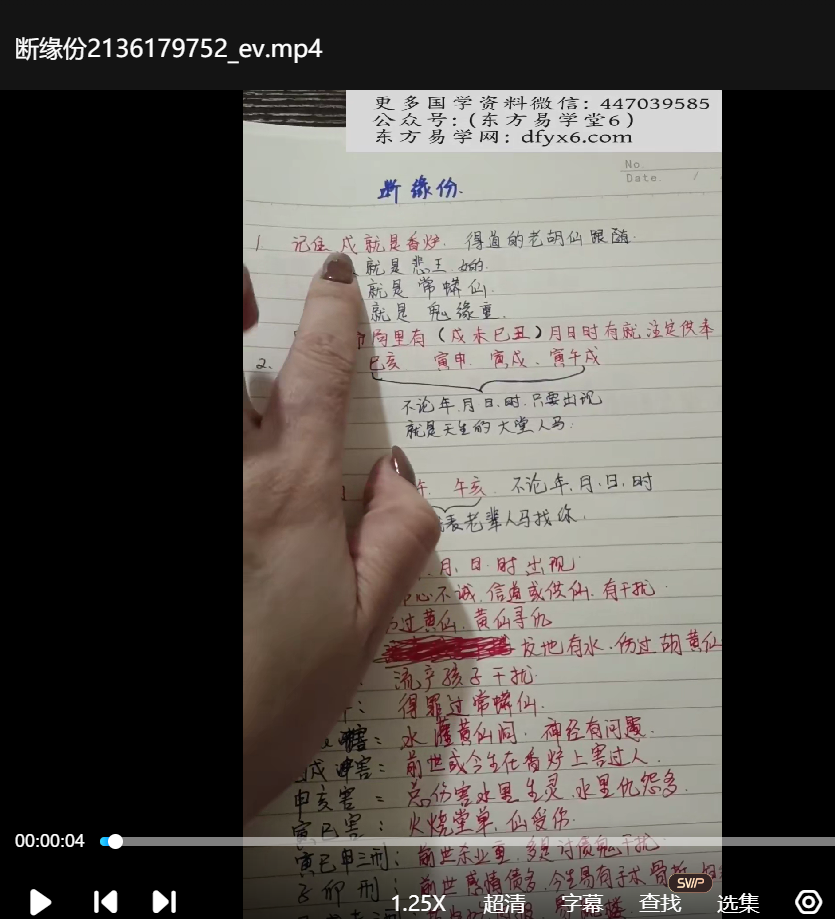 断缘份2136179752_ev.mp4
更多国学资料微信：447039585
公众号：(东方易学堂6)
东方易学网：dfyx6.com
No.
Date. /
断缘份.
1 记住 戌就是香炉. 得道的老胡仙跟随.
就是悲王
就是 常蟒仙.
就是 鬼缘重.
里有（戌未巳丑）月日时有就注定供奉
2. 巳亥 寅申. 寅戌、寅午戌
不论年.月日.时.只要出现
就是天生的大堂人马.
午亥. 不论年、月、日、时
老辈人马找你.
月、日.时出现
心不诚.信道或供仙.有干扰.
伤过黄仙.黄仙寻仇
坟地有水.伤过胡黄仙
流产孩子干扰.
得罪过常蟒仙.
害: 水灌黄仙洞. 神经有问题.
戌害: 前世或今生在香炉上害过人.
申亥害: 总伤害水里生灵.水里仇怨多.
寅巳害: 火烧堂单.仙受伤.
寅巳申三刑: 前世杀业重.多是讨债鬼干扰.
子卯刑: 前世感情债多.今生易有手术
00:00:04
SVIP
1.25X 超清 字幕 查找 选集